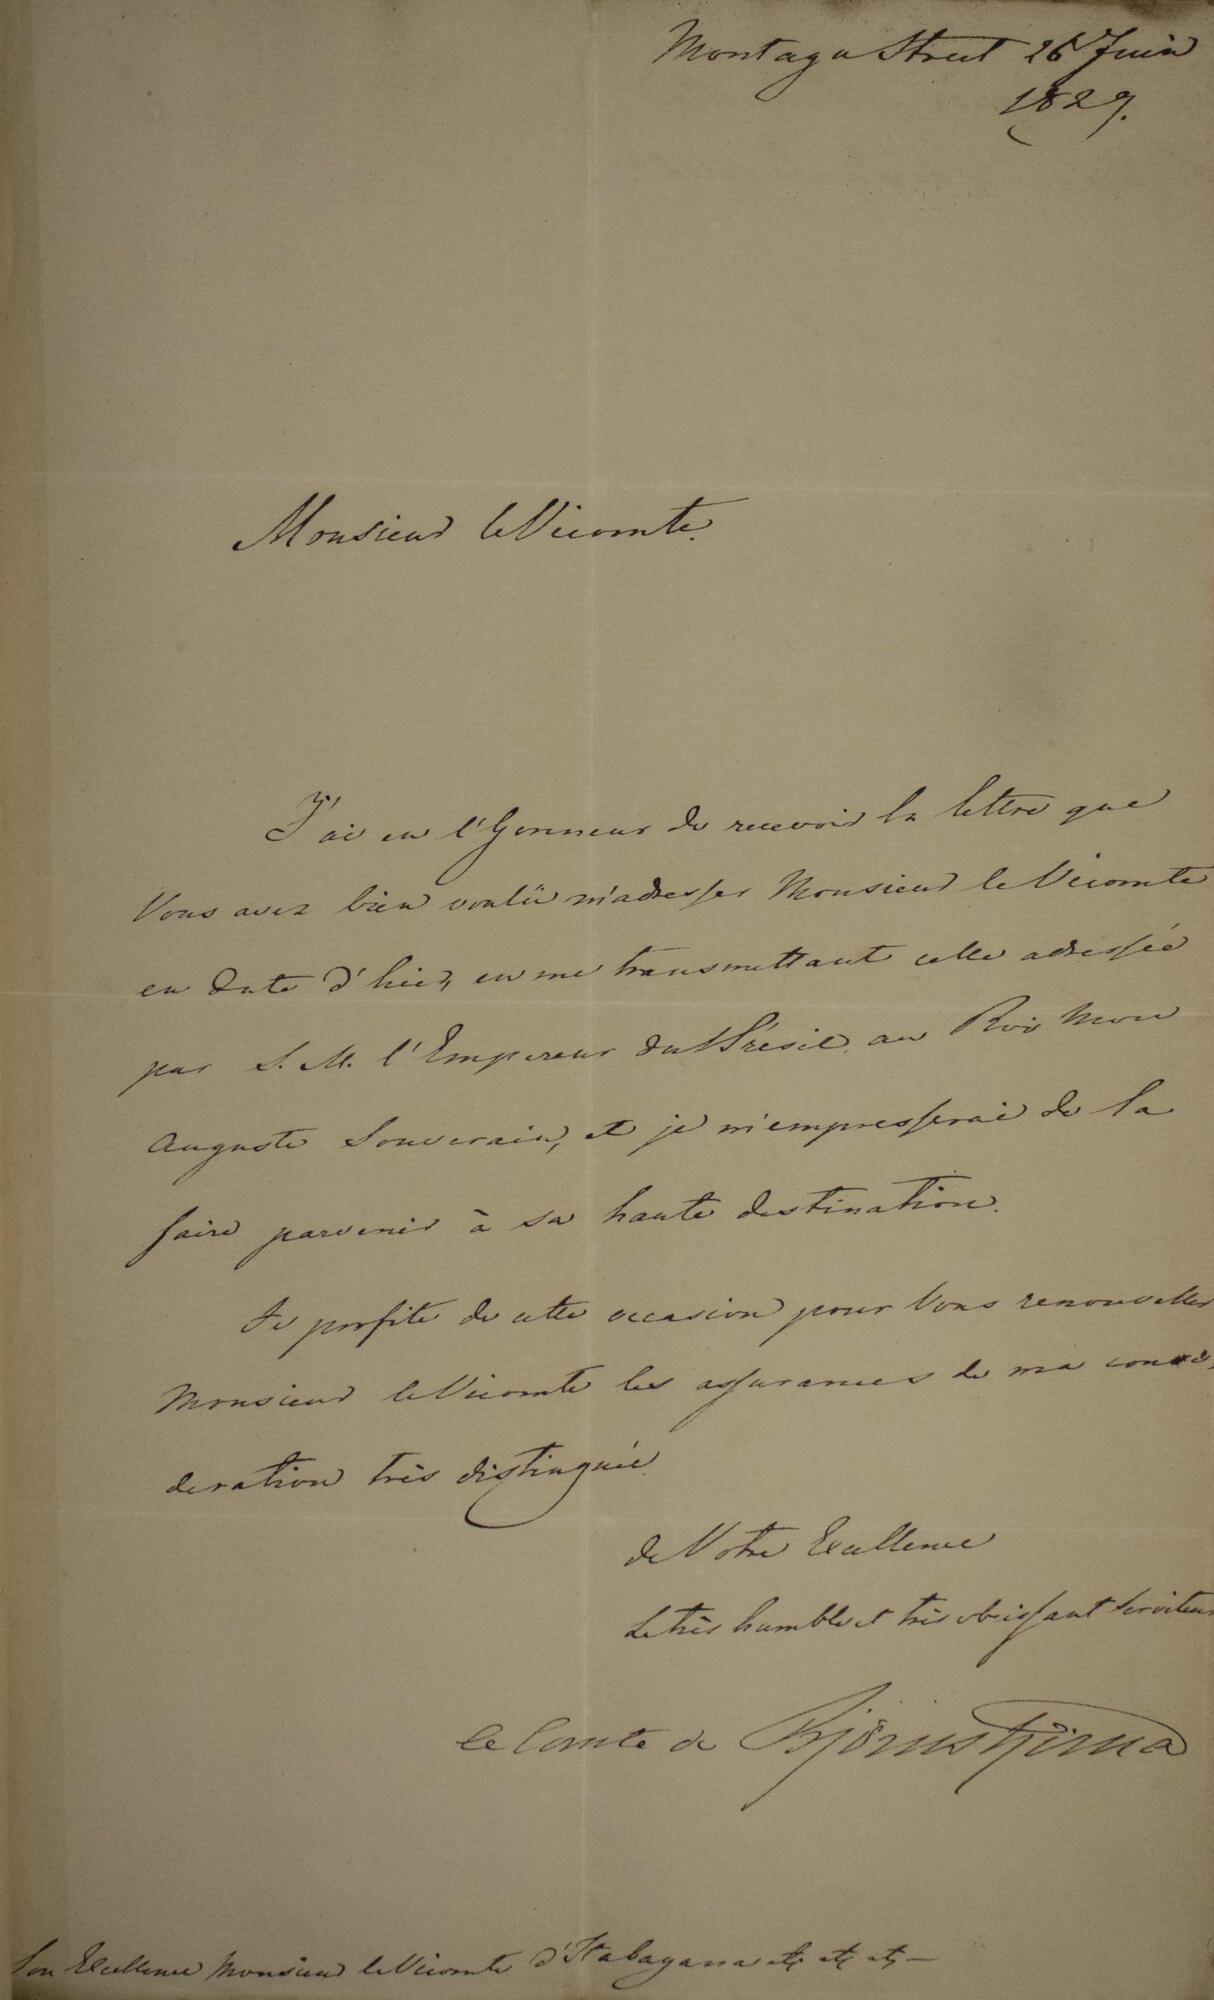 Montagu Street 26 Juin
1829.
Monsieur le Vicomte.
J'ai eu l'honneur de recevoir la lettre que
Vous avez bien voulü m'adresser Monsieur le Vicomte
en date d'hier, en me transmettant celle adressée
par S. M. l'Empereur du Brésil, au Roi Mon
Auguste Souverain, et je m'empresserai de la
faire parvenir à sa haute destination.
Je profite de cette occasion pour Vous renouveller
Monsieur le Vicomte les assurances de ma consi-
deration très distinguée.
de Votre Excellence
Le très humble et très obeissant Serviteur
le Comte de Björnstjerna
Son Excellence Monsieur le Vicomte d'Itabayana etc etc etc —